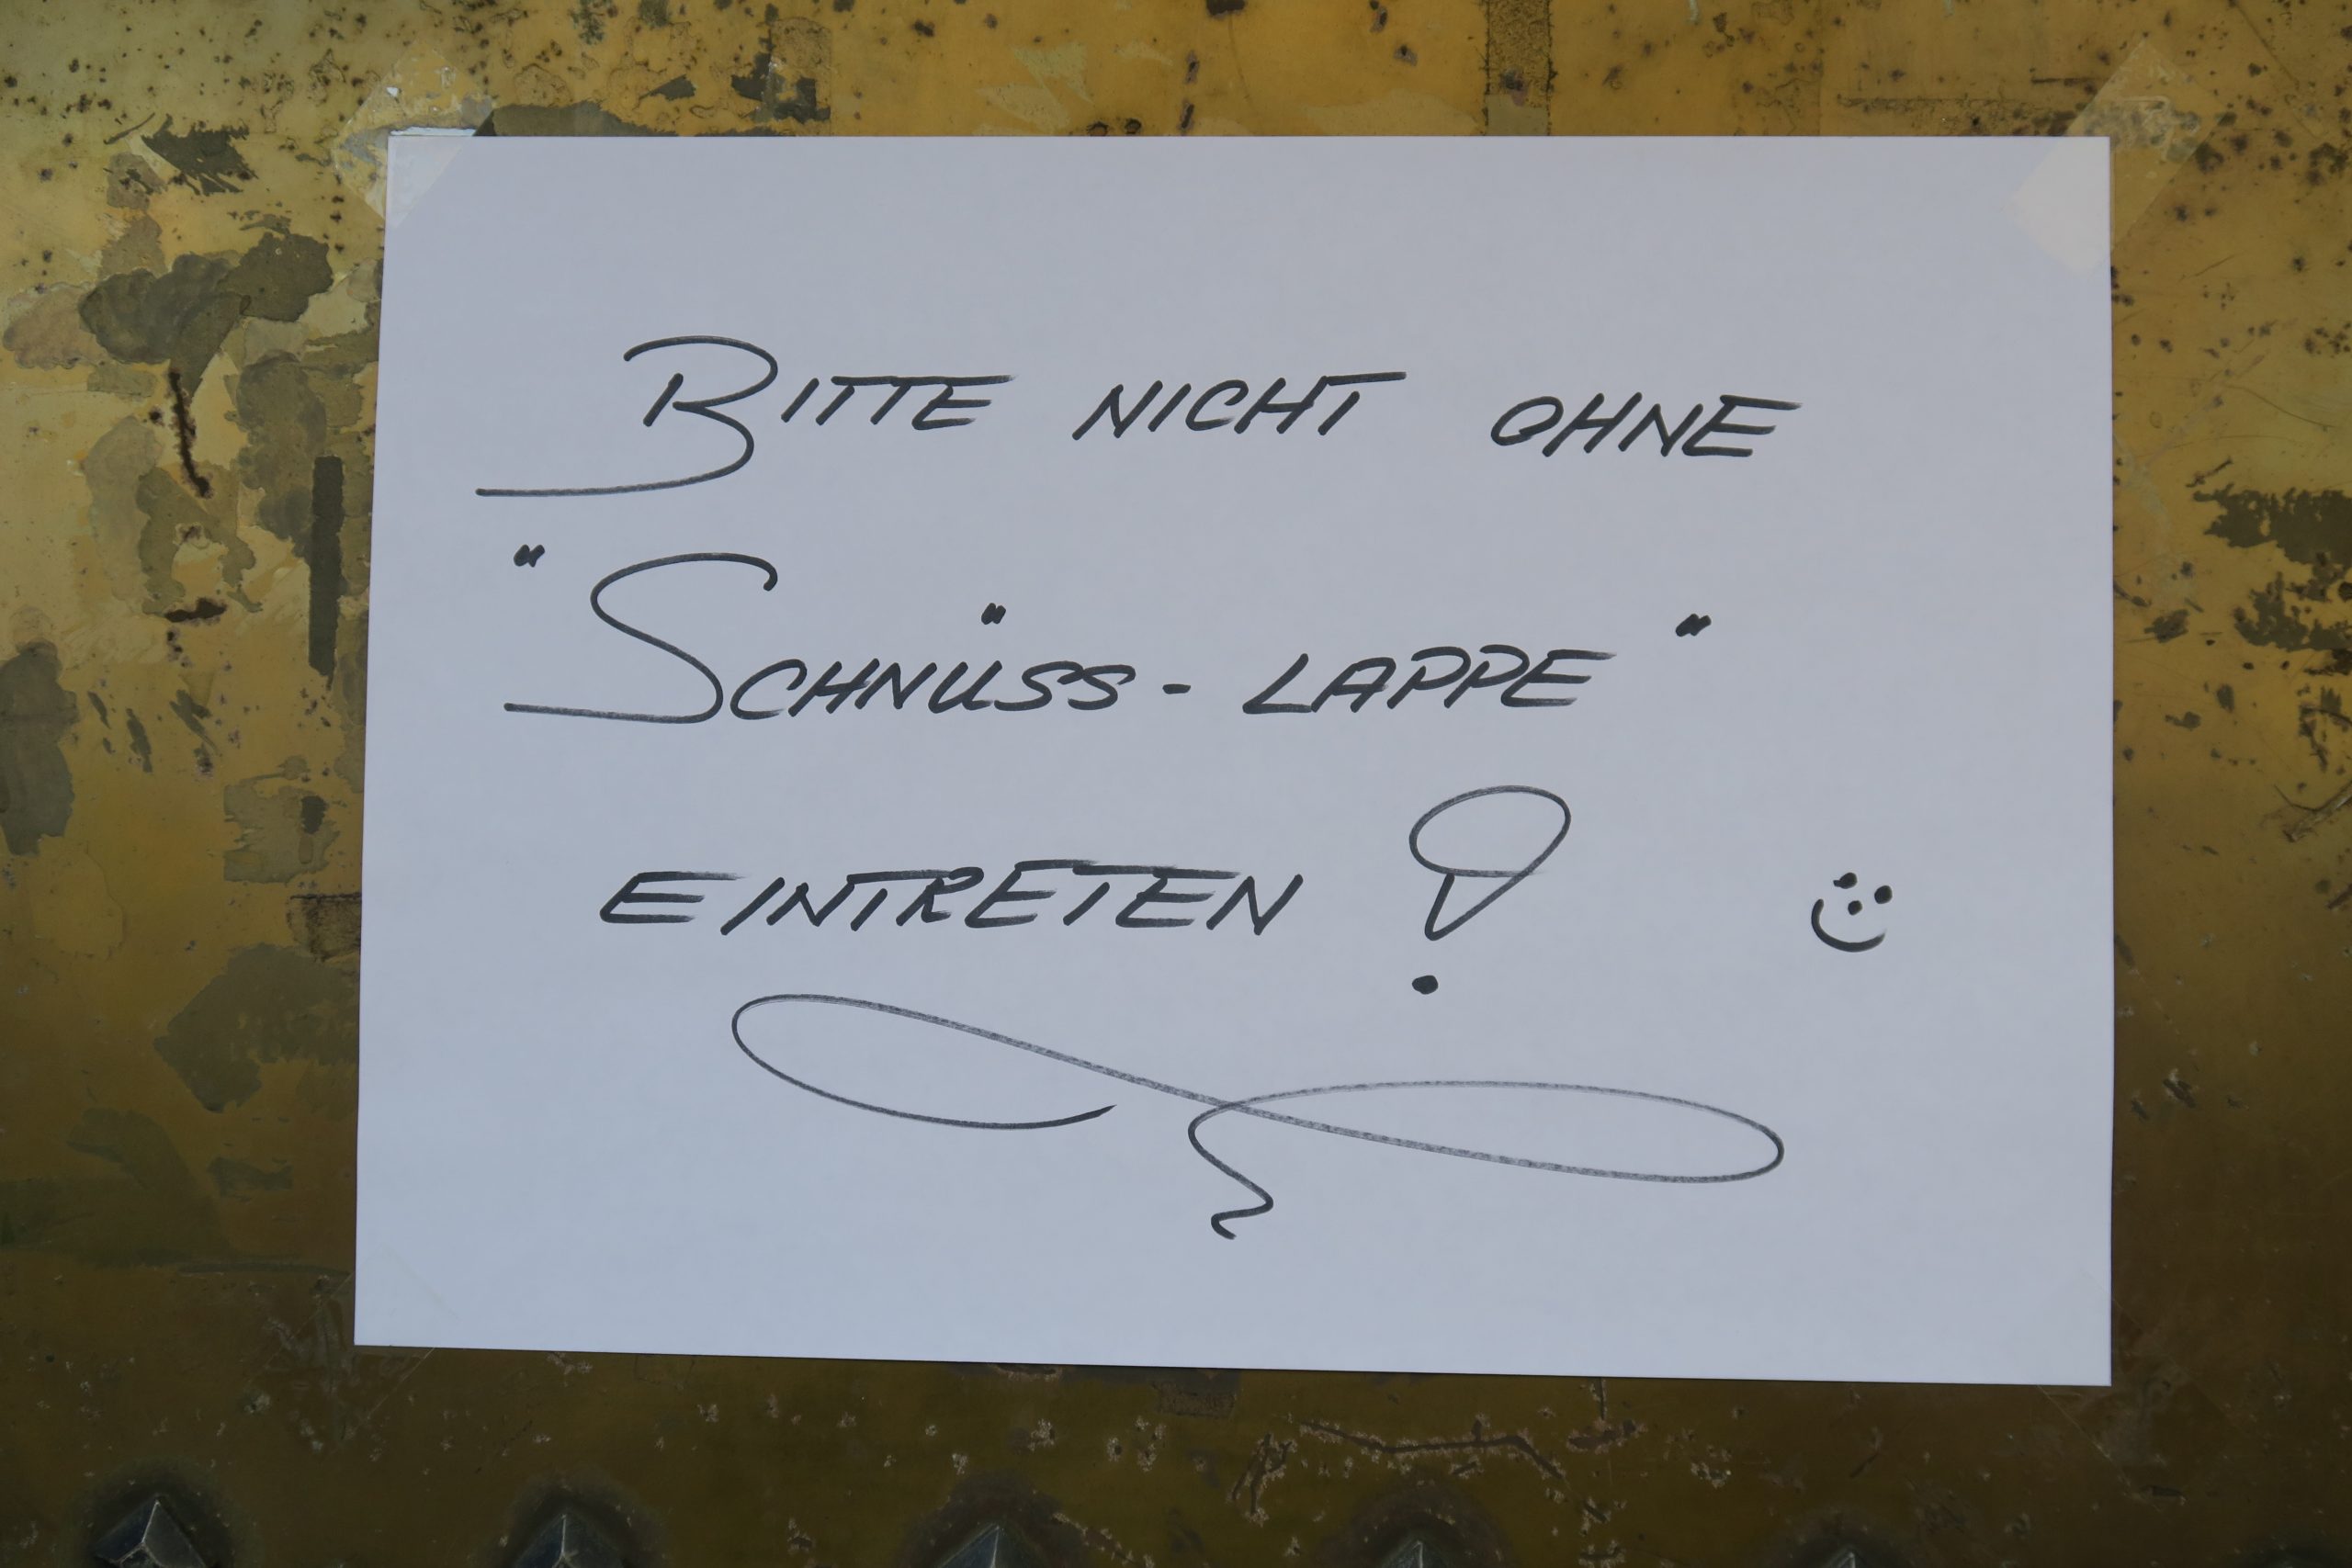 BITTE NICHT OHNE
"SCHNÜSS-LAPPE"
EINTRETEN!